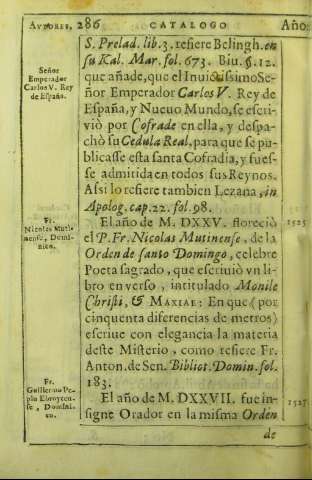 AVTORES, 286 CATALOGO Año:
S. Prelad. lib. 3. refiere Belingh. en
su Kal. Mar. fol. 673. Biu. §. 12.
Señor
Emperador
Carlos V. Rey
de España.
que añade, que el Inuictissimo Se-
ñor Emperador Carlos V. Rey de
España, y Nueuo Mundo, se escri-
viò por Cofrade en ella, y despa-
chò su Cedula Real, para que se pu-
blicasse esta santa Cofradia, y fues-
se admitida en todos sus Reynos.
Assi lo refiere tambien Lezana, in
Apolog. cap. 22. fol. 98.
Fr.
Nicolas Muti-
nense, Domi-
nico.
El año de M. DXXV. floreciò
1525
el P. Fr. Nicolas Mutinense, de la
Orden de santo Domingo, celebre
Poeta sagrado, que escriuiò vn li-
bro en verso, intitulado Monile
Christi, & MARIAE: En que (por
cinquenta diferencias de metros)
escriue con elegancia la materia
deste Misterio, como refiere Fr.
Anton. de Sen. Bibliot. Domin. fol.
183.
Fr.
Guillermo Pe-
se, Domini-
co.
El año de M. DXXVII. fue in-
1527
signe Orador en la misma Orden
de